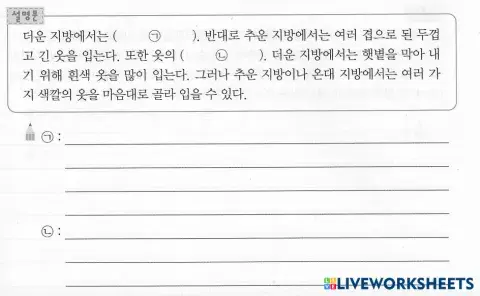 설명문
더운 지방에서는 ( ㉠ ). 반대로 추운 지방에서는 여러 겹으로 된 두껍
고 긴 옷을 입는다. 또한 옷의 ( ㉡ ). 더운 지방에서는 햇볕을 막아 내
기 위해 흰색 옷을 많이 입는다. 그러나 추운 지방이나 온대 지방에서는 여러 가
지 색깔의 옷을 마음대로 골라 입을 수 있다.
㉠ :
㉡ :
LIVEWORKSHEETS